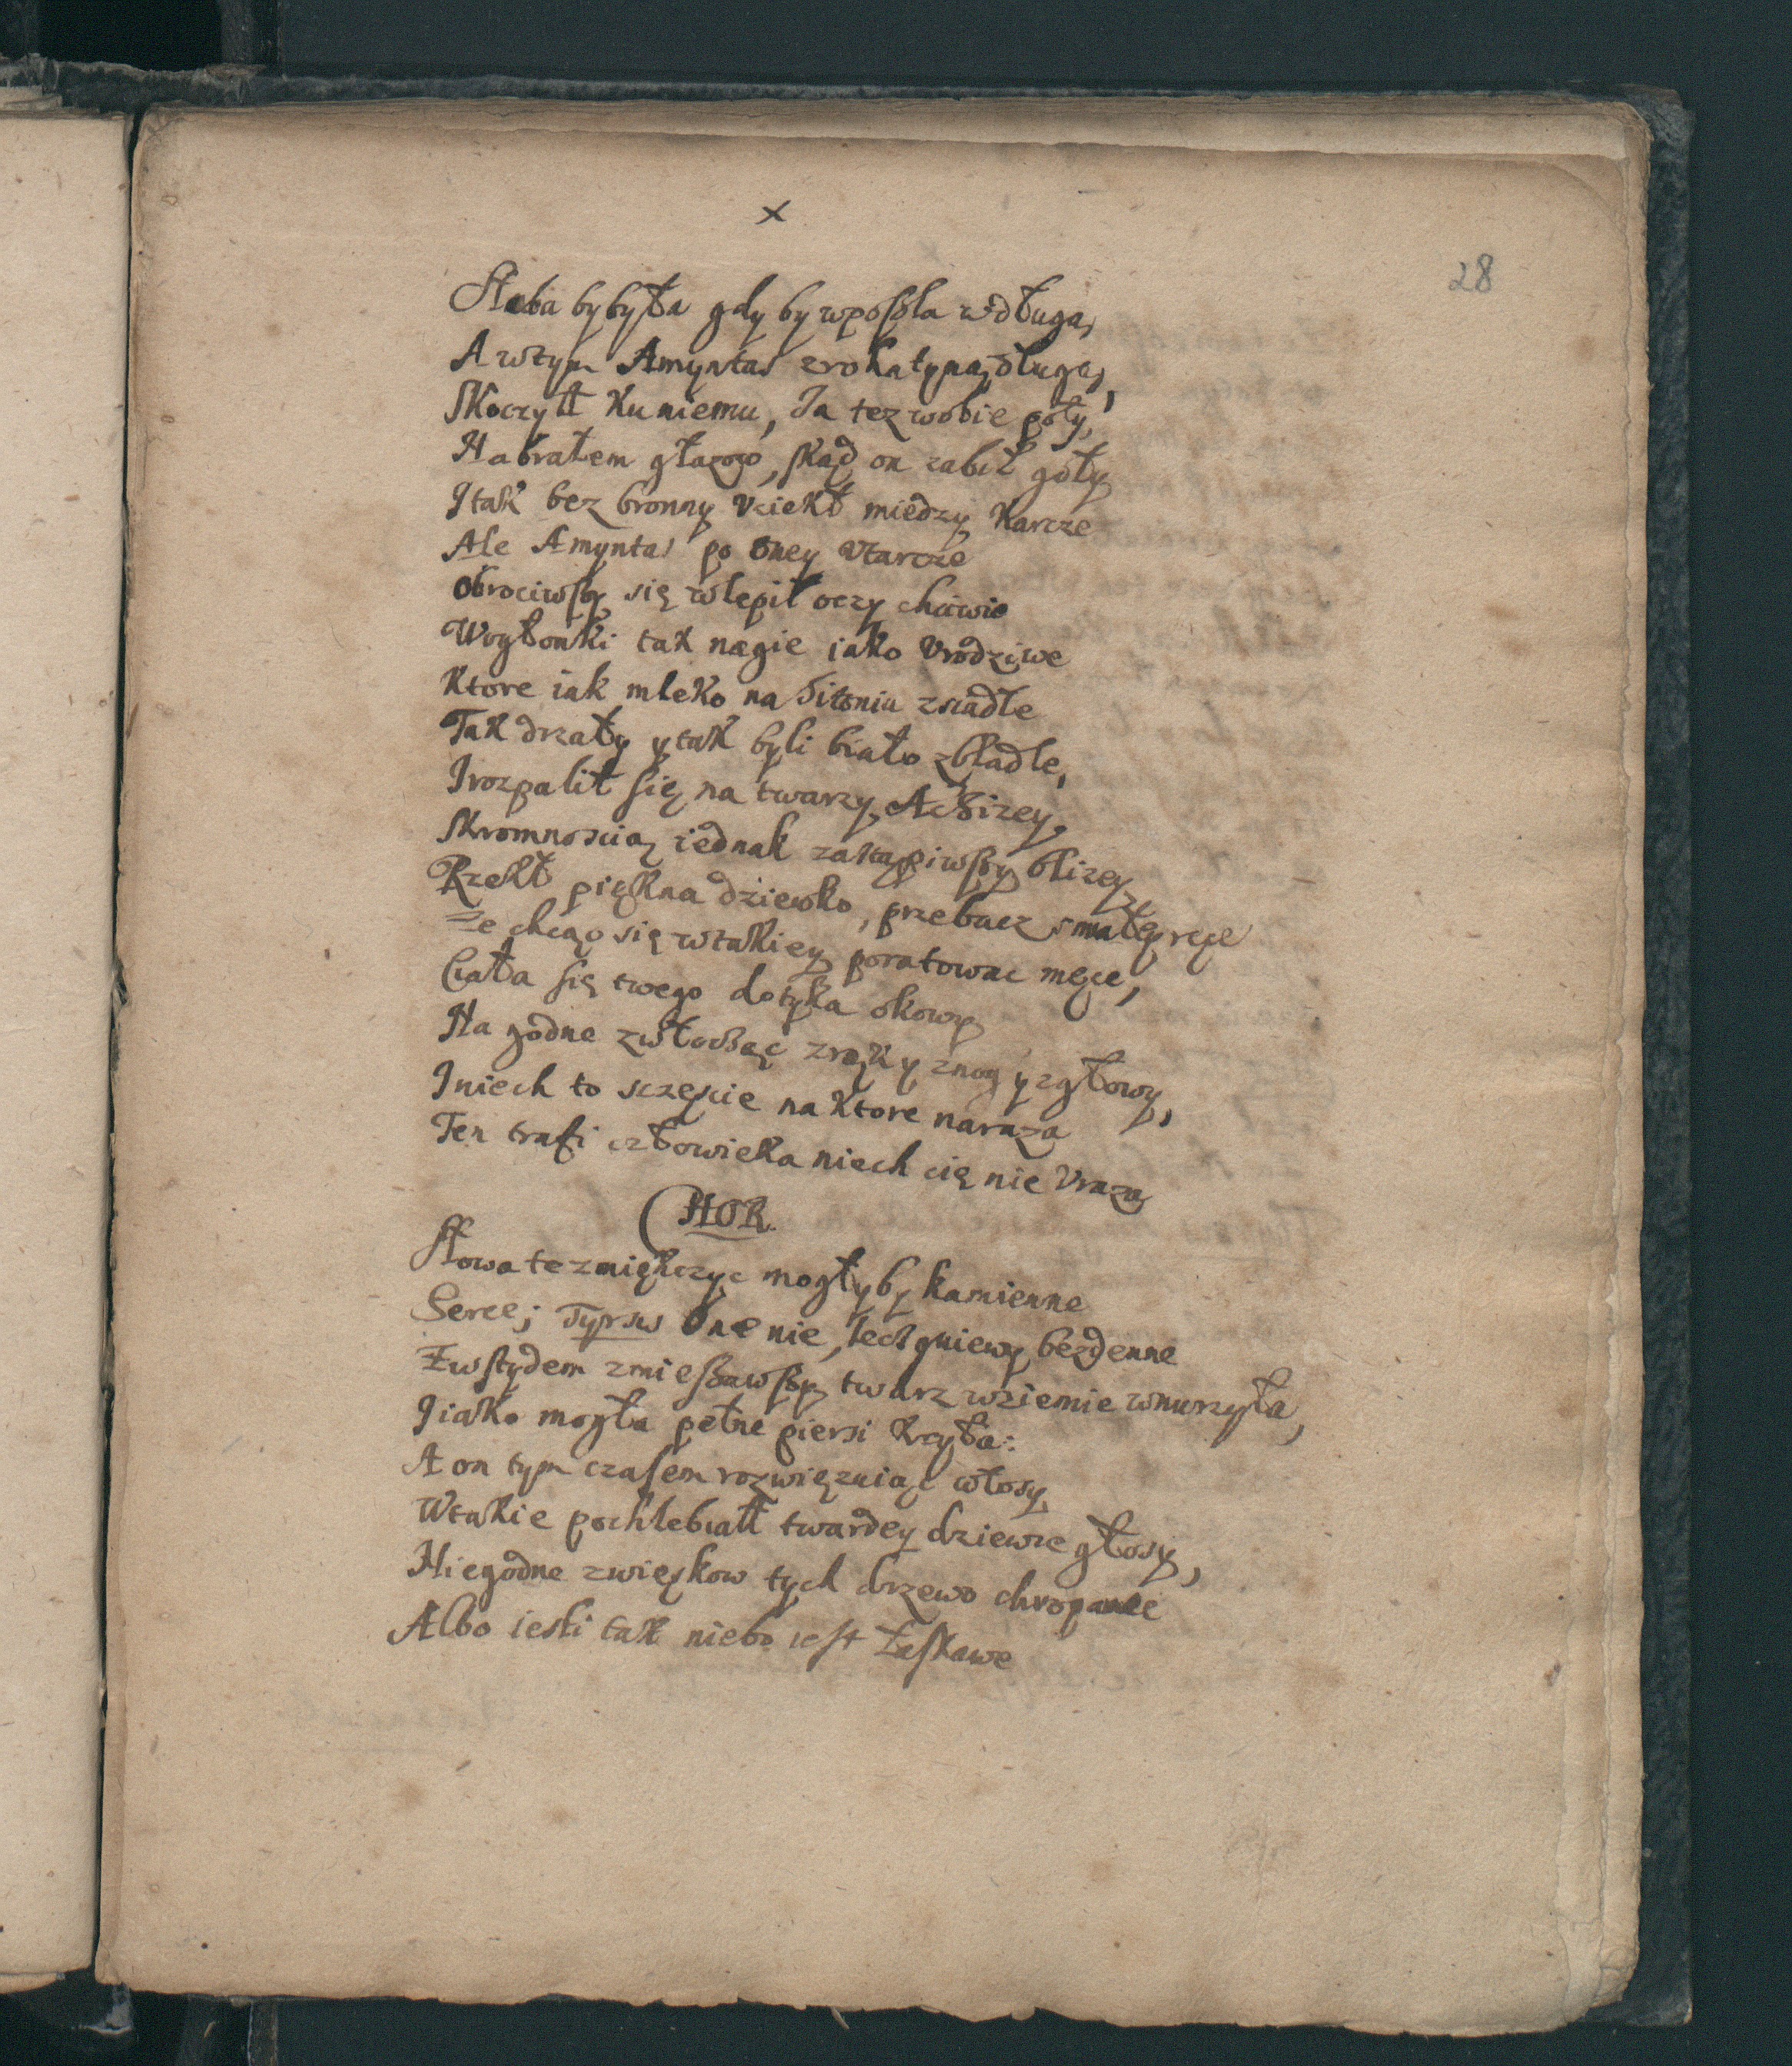 x
28
Słaba by była gdy by wposzła wdługą,
A wtym Amyntas zrohatyną długą,
Skoczył Ku niemu, Ja tez wobie poły,
Nabrałem głazow, skąd on zabił goły
I tak bez bronny Vciekł miedzy Karcze
Ale Amyntas po oney Vtarcze
Obrociwszy się wlepił oczy chciwie
W członki tak nagie iako Vrodziwe
Ktore iak mleko na sitoniu zsiadłe
Tak drzały y tak byli biało zbladłe,
I rozpalił się na twarzy, Ac bizey,
Skromnoscią iednak zakąpiwszy blizey
Rzekł piękna dziewko, przebacz smałey ręce
Ze chcąc się wtakiey poratowac męce,
Ciała się twego dotyka okowy
Na godne zwłocząc z rąk y z nog y z głowy,
I niech to sczęscie na Ktore naraza
Ten trafi człowieka niech cię nie Vraza
CHOR.
Słowa te zmiękczyc mogłyby kamienne
Serce; Tyrsis One nie, lecz gniewy bezdenne
Z wstydem zmieszawszy twarz wziemie wnurzyła,
I iako mogła pełne piersi Kryła:
A on tym czasem rozwięzuiąc włosy
W takie pochlebiał twardey dziewce głosy,
Niegodne zwięskow tych drzewo chropawe
Albo iesli tak niebo iest łaskawe